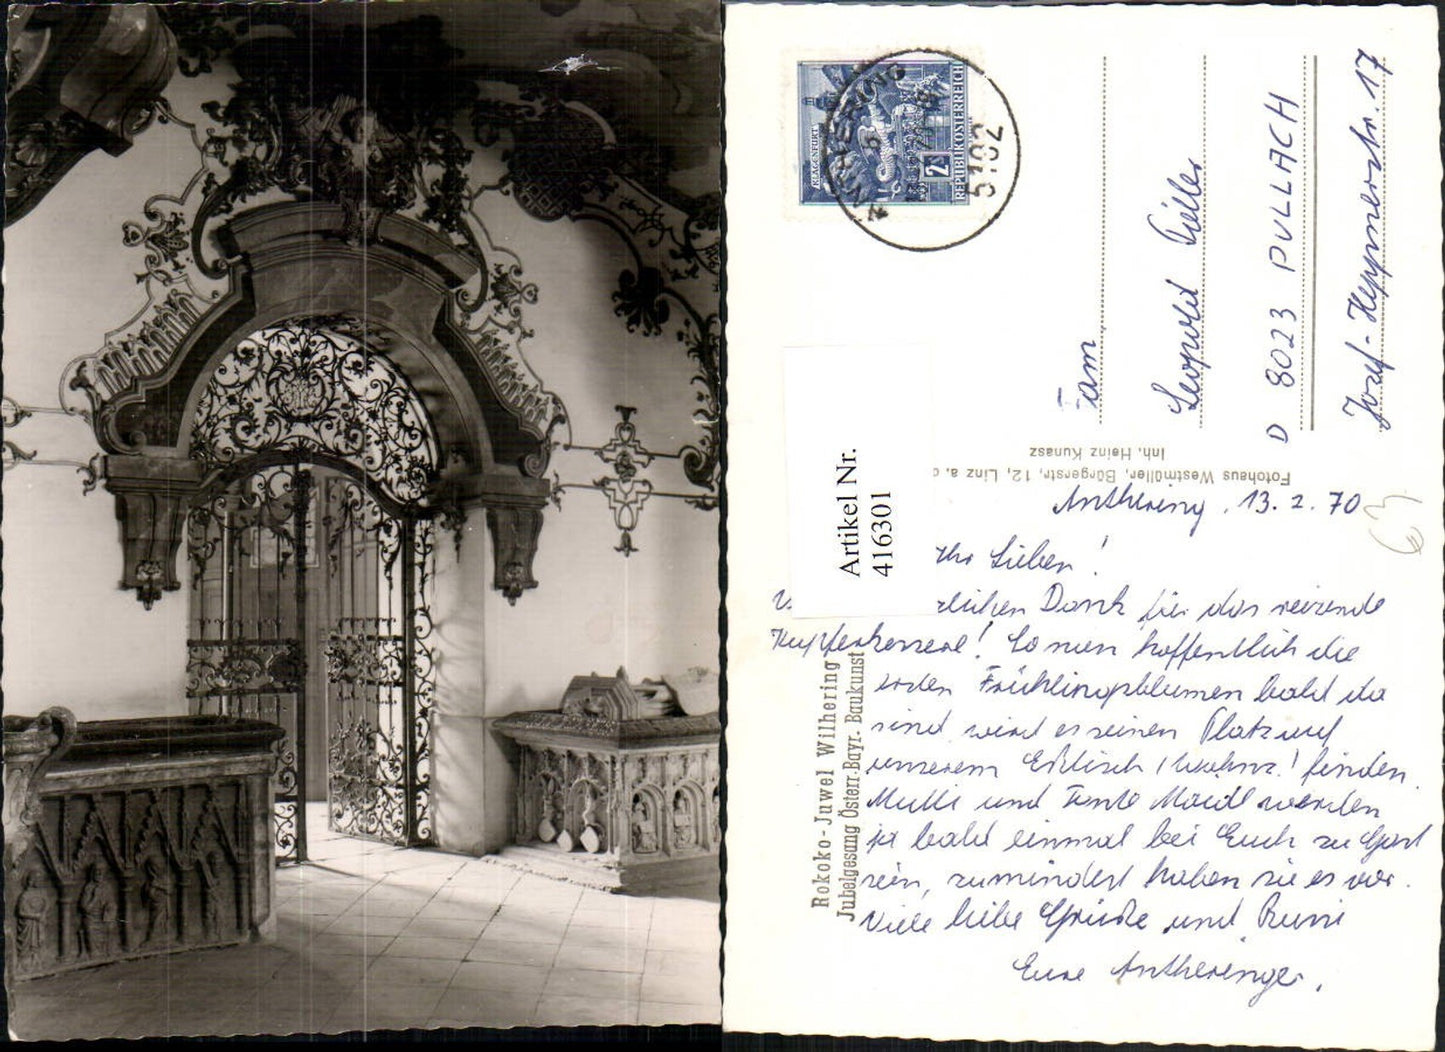 KLAGENFURT
2S
REPUBLIK ÖSTERREICH
ANTHERING
5102
Fam.
Leopold
D 8023 PULLACH
Josef-Heppnerstr. 17
Fotohaus Westmüller, Bürgerstr. 12, Linz a.
Inh. Heinz Kunasz
Artikel Nr.
416301
Rokoko-Juwel Wilhering
Jubelgesang Österr.-Bayr. Baukunst
Anthering, 13. 2. 70
Ihr Lieben!
Dank für das reizende
! So nun hoffentlich die
ersten Frühlingsblumen bald da
sind wird es seinen Platz auf
unserem Eßtisch (Wohnz.! finden.
Mutti und Tante Maidl werden
ja bald einmal bei Euch zu Gast
sein, zumindest haben sie es vor.
Viele liebe Grüße und Bussi
Eure Antheringer.